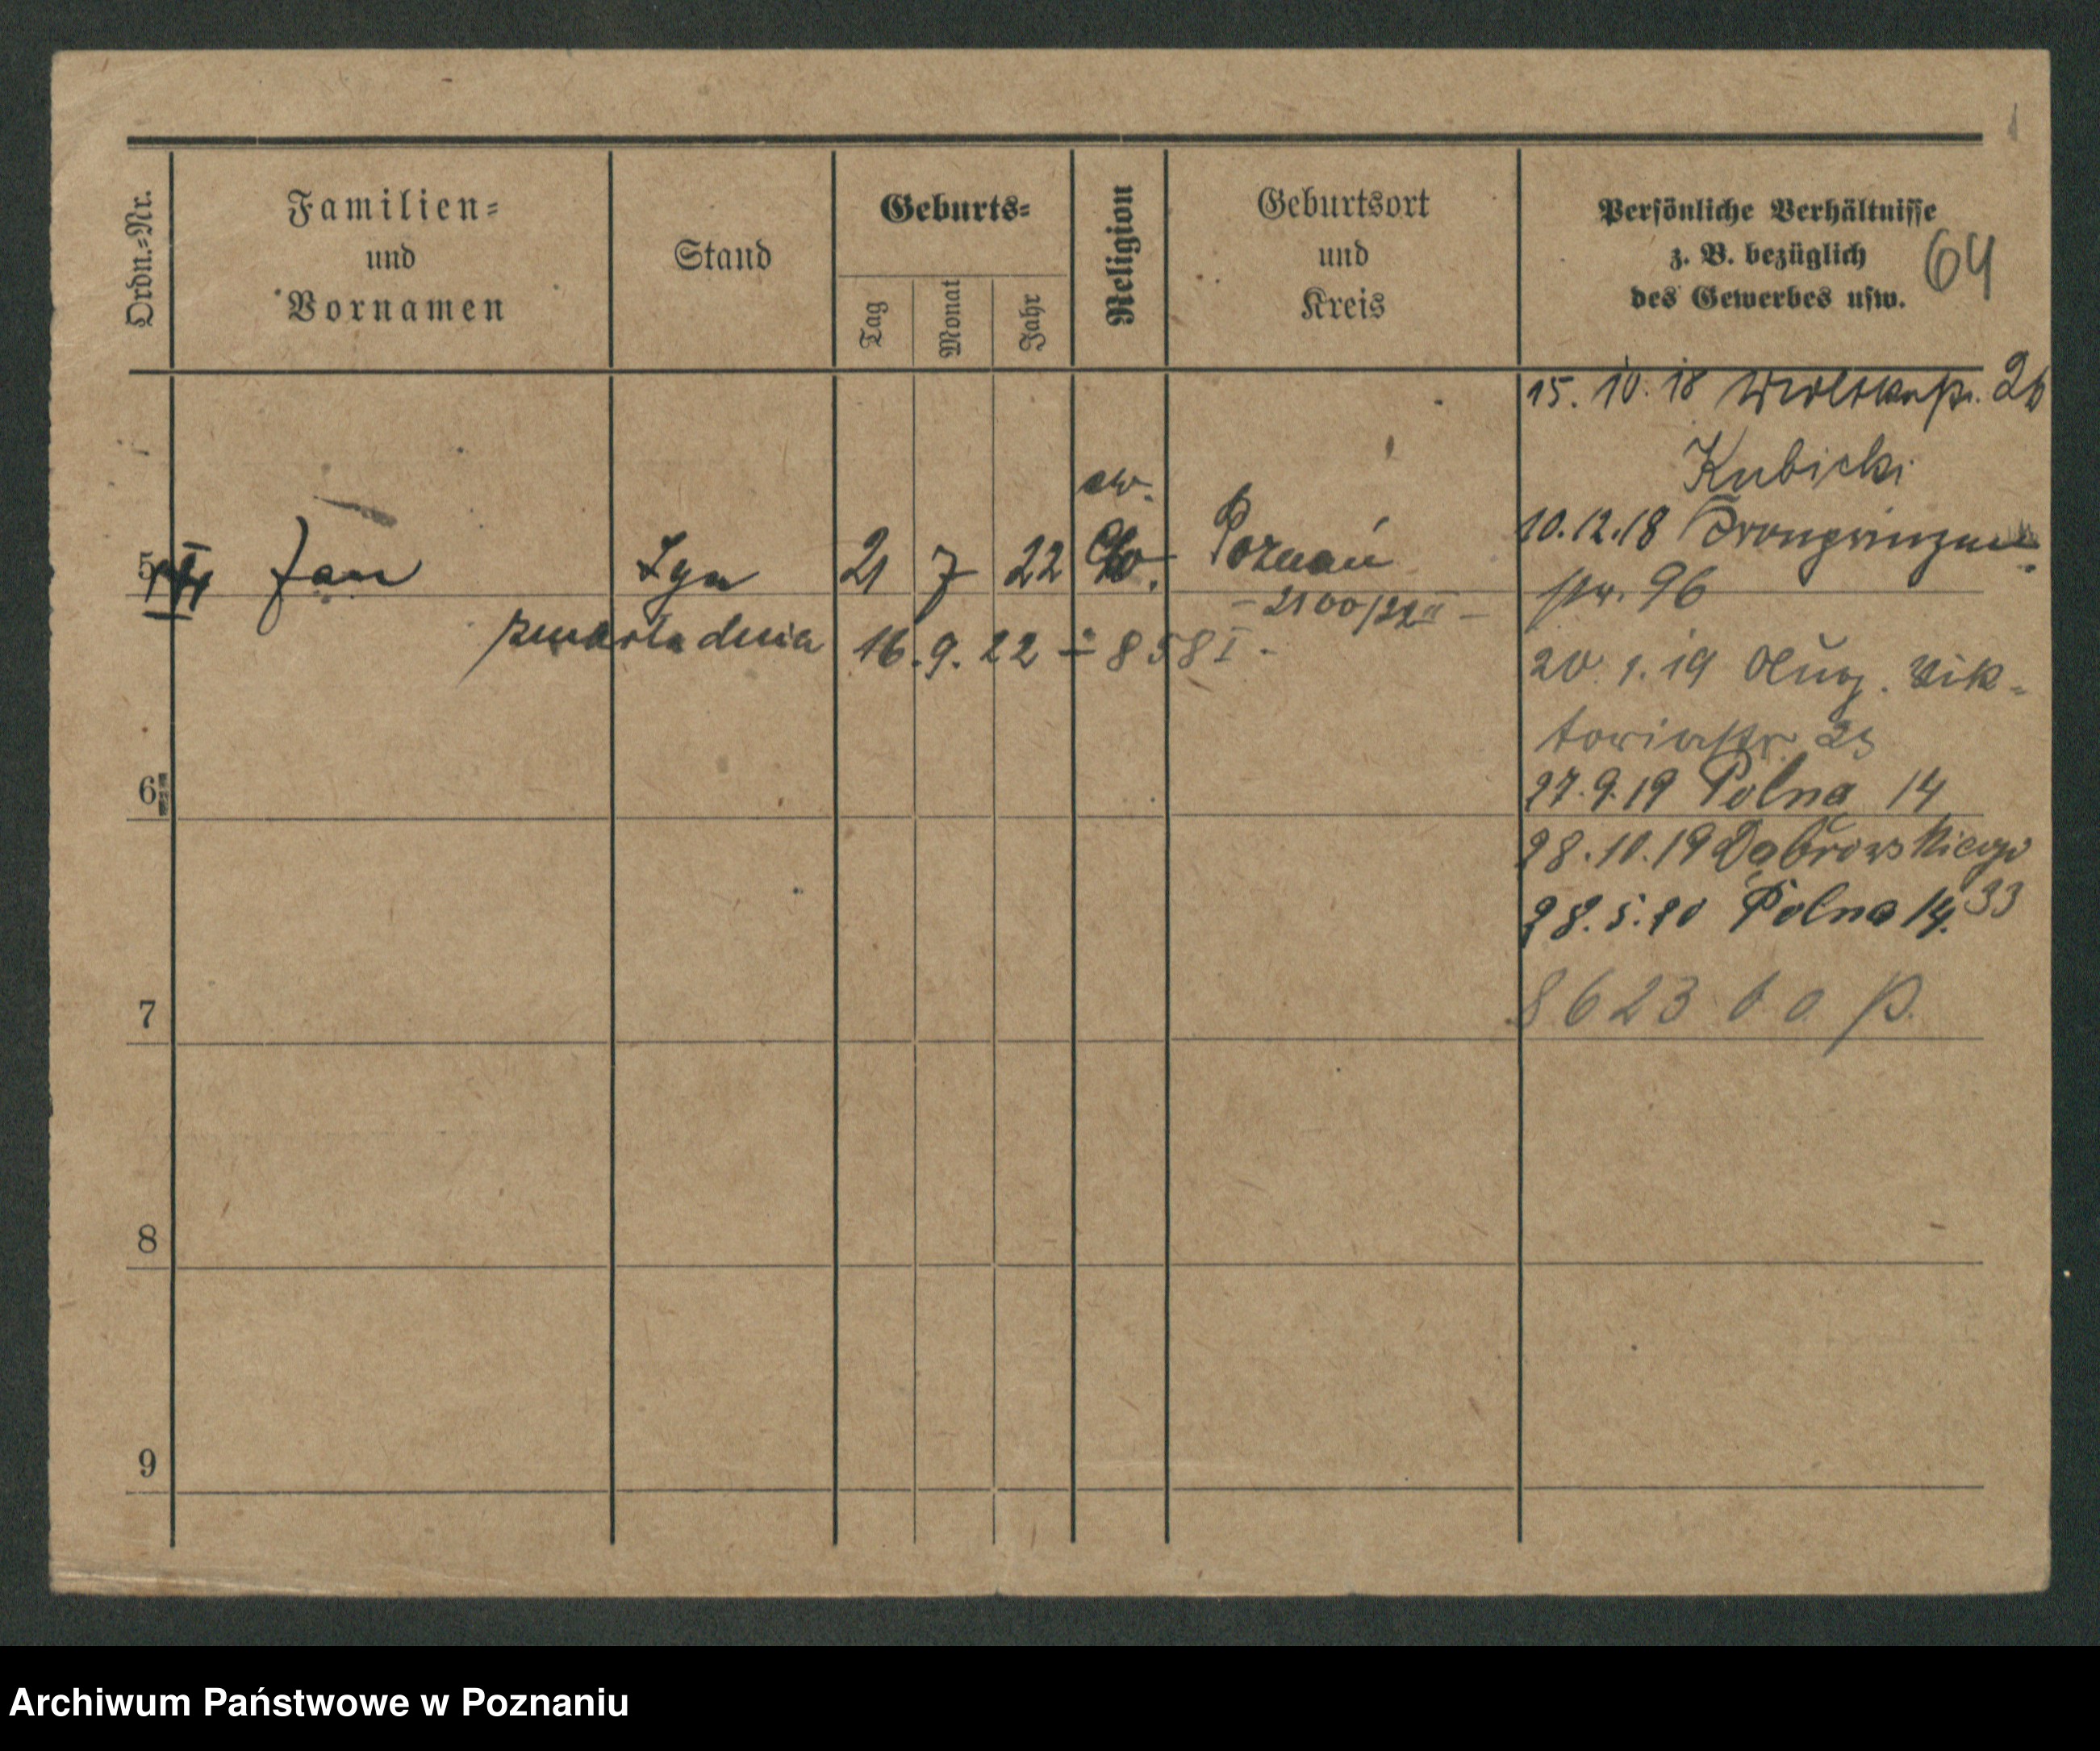 Ordn.=Nr.
Familien=
und
Vornamen
Stand
Geburts=
Tag
Monat
Jahr
Religion
Geburtsort
und
Kreis
Persönliche Verhältnisse
z. B. bezüglich
des Gewerbes usw.
64
5
Jan
Syn
21 7 22
ew.
Poznań
- 2100/22 II -
zmarła dnia 16.9.22 - 858 I -
15. 10. 18
26
Kubicki
10.12.18 Kronprinzen
str. 96
20. 1. 19 Aug. Vik=
toriastr. 23
27.9.19 Polna 14
28.10.19 Dąbrowskiego
33
28.5.20 Polna 14.
8623
6
7
8
9
Archiwum Państwowe w Poznaniu